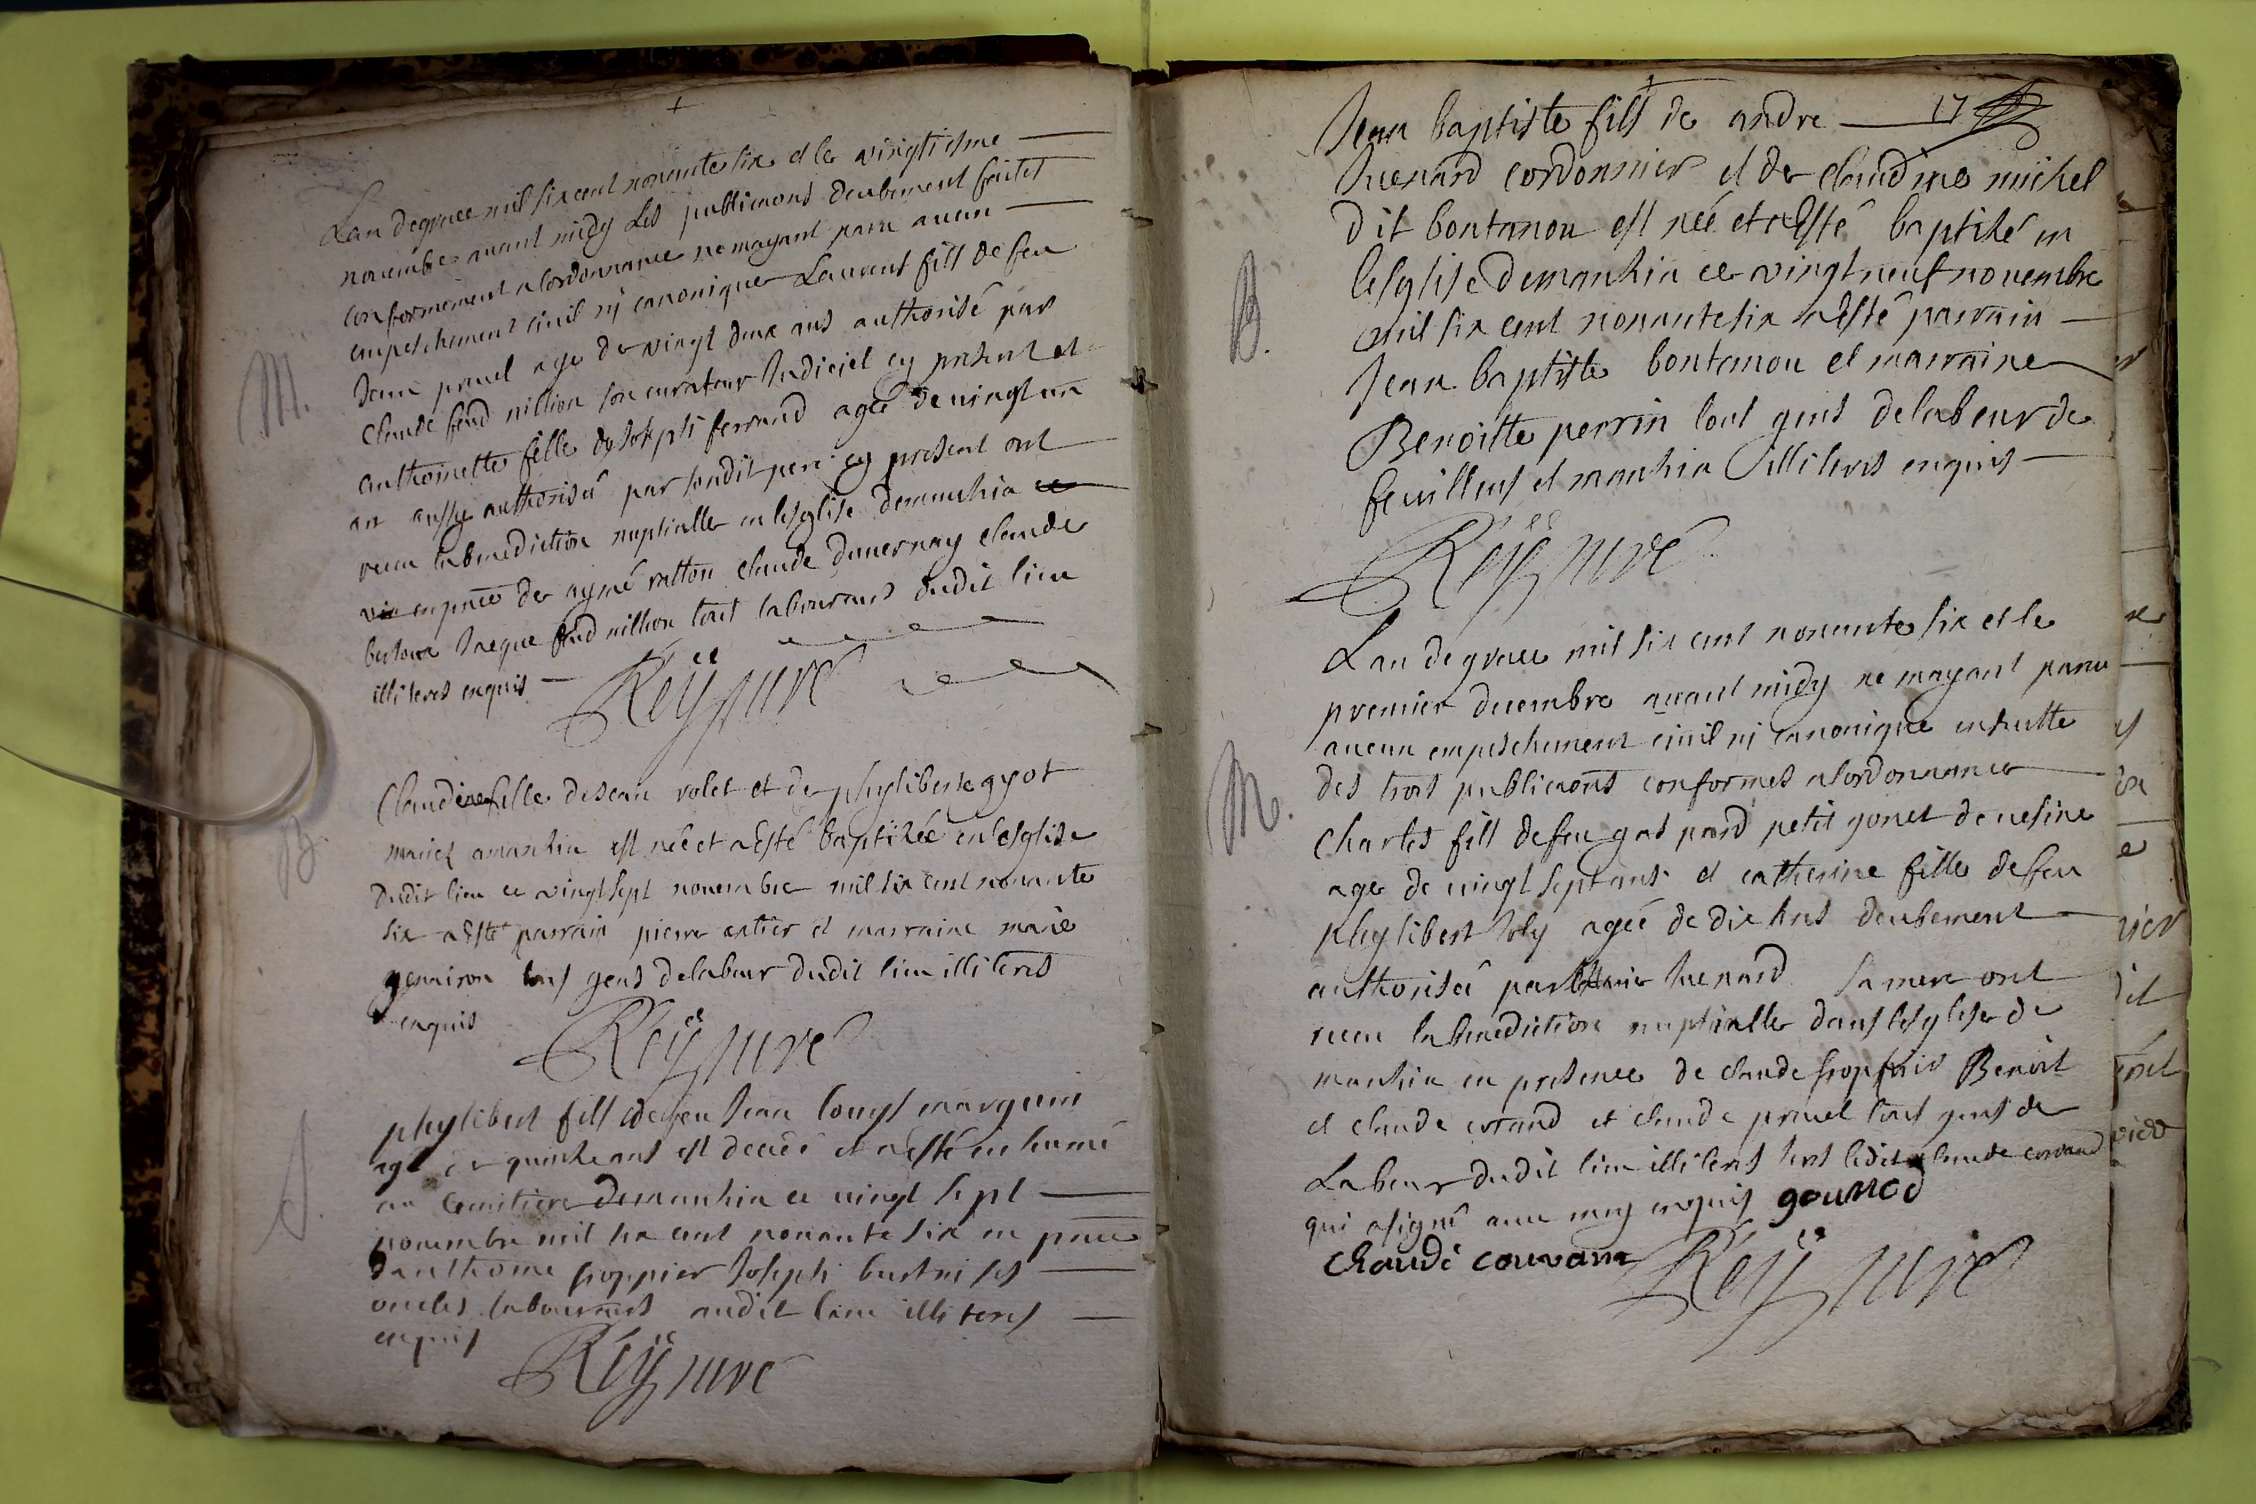 Lan degrace mil six cent nonante six et le vingtiesme
novembre avant midy les publicaons deubement faites
conformement a lordonnance ne mayant paru aucun
empeschement civil ny canonique Laurent fils de feu
Jean pruel age de vingt deux ans authorisé par
Claude son curateur Judiciel cy present et
anthoinette fille de Joseph ferrand agée de vingt un
an aussy authorisée par sondit pere cy present ont
receu la benediction nuptialle en lesglise demanhia
en pnce de aymé ratton claude duvernay claude
Jaque tous laboureurs dudit lieu
illiteres enquis
M.
Reÿ curé
Claudine fille de Jean volet et de phyliberte gyot
amanhia est née et a Esté baptizée en lesglise
dudit lieu ce vingt sept novembre mil six cent nonante
six a Esté parrain pierre et marraine marie
tous gens delabeur dudit lieu illiteres
enquis
B.
Reÿ curé
phylibert fils de feu Jean louys marguin
agé de quinze ans est decédé et a esté enhumé
au cemitiere demanhia ce vingt sept
novembre mil six cent nonante six en pnce
danthoine froppier Joseph ses
oncles laboureurs audit lieu illiteres
enquis
S.
Reÿ curé
17
Jean baptiste fils de andre
Juenard cordonnier et de claudine michel
dit bontanou est néé et a Esté baptisé en
lesglise demanhia ce vingt neuf novembre
mil six cent nonante six a Esté parrain
Jean baptiste bontanou et marraine
Benoitte perrin tous gens delabeur de
feuillens et manhia illiteres enquis
B.
Reÿ curé
Lan de grace mil six cent nonante six et le
premier decembre avant midy ne mayant paru
aucun empeschement civil ni canonique ensuitte
des trois publicaons conformes a lordonnance
Charles fils defeu gaspard petit gonet de vesine
age de vingt sept ans et catherine fille defeu
phylibert Joly agéé de dix ans deubement
authorisée par Juenard sa mere ont
receu la benediction nuptialle dans lesglise de
manhia en presence de claude Benoit
et claude et claude pruel tous gens de
Labeur dudit lieu illiteres hors ledit claude
qui a signé avec moy enquis gounod
M.
Reÿ curé